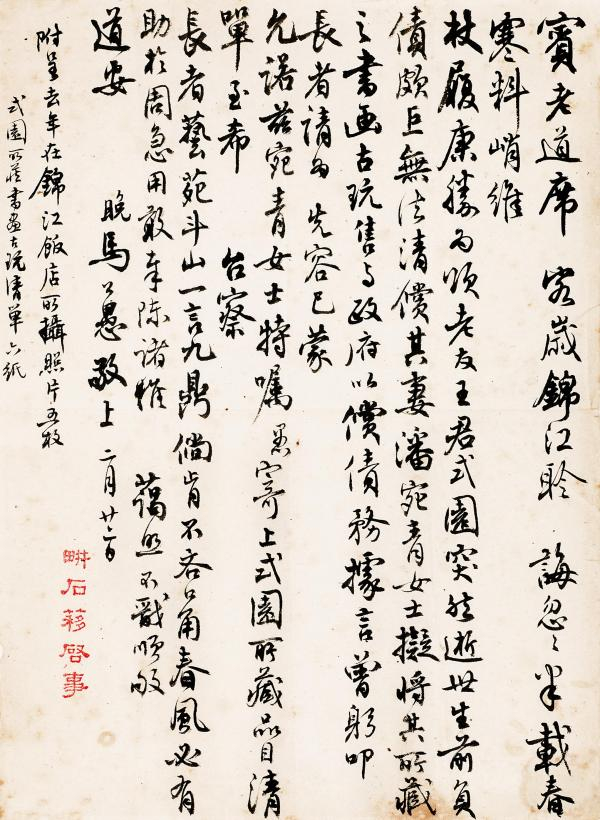 賓老道席 客歲錦江聆 誨忽々半載春
寒料峭維
杖履康勝為頌老友王君式園突然逝世生前負
債頗巨無法清償其妻潘宛青女士擬將其所藏
之書画古玩售与政府以償債務據言曾躬叩
長者請為先容已蒙
允諾茲宛青女士特囑愚寄上式園所藏品目清
單至希 台察
長者藝苑斗山一言九鼎倘肯不吝口角春風必有
助於周急用敢奉陳諸維 藹照不戩順頌
道安 晚馬公愚敬上 二月廿六日
附呈去年在錦江飯店所攝照片五枚
式園所藏書畫古玩清單六紙
畊石簃啓事